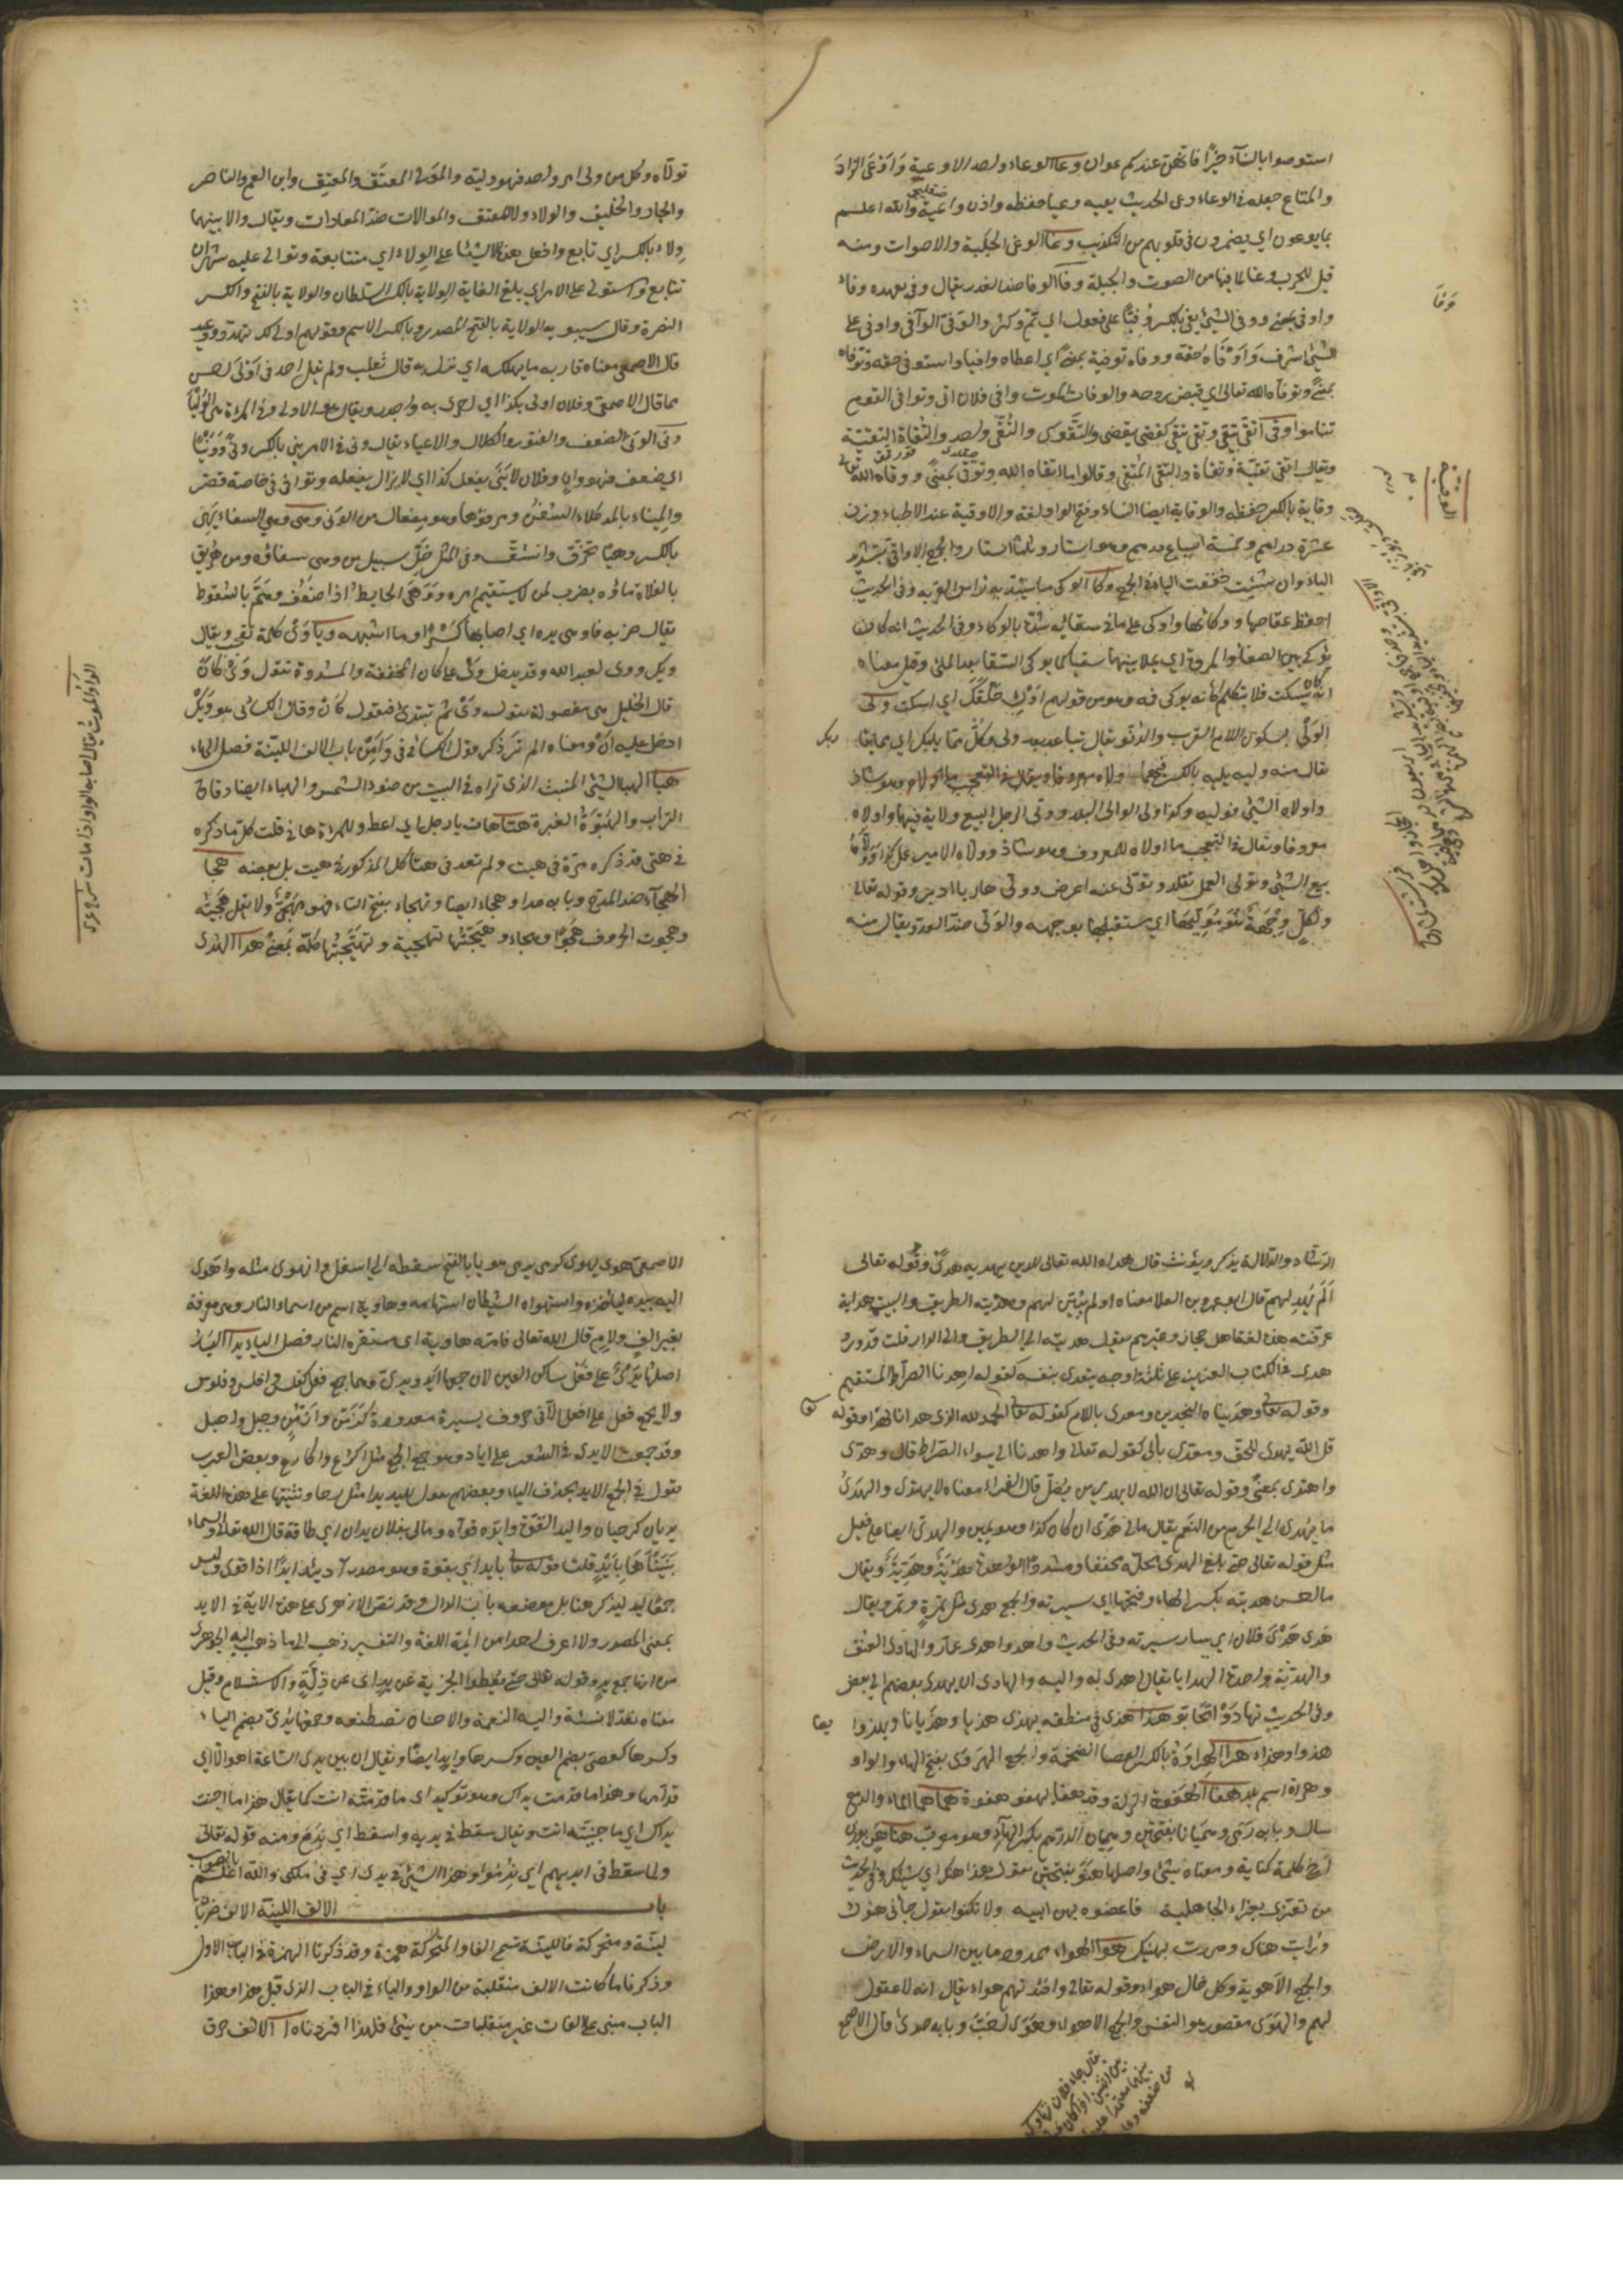 استوصوا بالنسآء خيرًا فانهن عندكم عوان وعا الوعاء واحد الاوعية وَاَوْعَى الزادَ
والمتاع جعله في الوعاء وعى الحديث يعيه وعيا حفظه واذن واعية والله اعلم
بما يوعون اي يضمرون في قلوبهم من التكذيب وغا الوغى الجلبة والاصوات ومنه
قيل للحرب وغا لما فيها من الصوت والجلبة وفا الوفا ضد الغدر يقال وفي بعهده وفاء
واوفى بمعنى ووفى الشيئ يفى بالكسر وُفِيًّا على فعول اي تمّ وكثر والوفيّ الوافى واوفى على
الشيئ اشرف وَاَوْفَاه حقه ووفاه توفية بمعنى اي اعطاه وافيا واستوفى حقه وتوفاه
بمعنى وتوفاه الله تعالى اي قبض روحه والوفاة الموت ووافى فلان اتى وتوافى القوم
تتاموا وقى اتقى يتقي وتقى يتقى كقضى يقضى والتَّقْوَى والتُّقَى واحد والتُّقاة التقيّة
ويقال اتقى تقيّة وتقاة والتقي المُتقي وقالوا ما اتقاه لله وتوقّى بمعنى ووقاه الله تعالى
وقاية بالكسر حفظه والوقاية ايضا للنساء وفتح الواو لغة والاوقية عند الاطباء وزن
عشرة دراهم وخمسة اسباع درهم وهو استار وثلثا استار والجمع الاواقيّ بتشديد
الياء وان شئت خففت الياء في الجمع وكا الوكى ما يشد به راس القربة وفي الحديث
احفظ عفاصها ووكائها واوكى على ما في سقائه شدّه بالوكاء وفي الحديث انه كان
يُوكي بين الصفا والمروة اي يملا بينهما سعيا كما يوكى السقا بعد الملئ وقيل معناه
انه كان يسكت فلا يتكلم كانه يوكى فمه وهو من قولهم اَوْكِ حَلْقَكَ اي اسكت ولى
الوَلْيُ بسكون اللام القرب والدنو يقال تباعد بعد ولى وكُلْ ممّا يليك اي مما يقاربك
يقال منه وليه يليه بالكسر فيهما
واولاه الشيئ فوليه وكذا ولي الوالى البلد وولى الرجل البيع ولاية فيهما واولاه
معروفا ويقال في التعجب ما اولاه للمعروف وهو شاذ وولاه الامير عمل كذا وَوَلَّاهُ
بيع الشيئ وتولى العمل تقلد وتولّى عنه اعرض وولّى هاربا ادبر وقوله تعالى
ولكلٍ وِجْهَةٌ هُوَ مُوَلِّيهَا اي مستقبلها بوجهه والوَلي ضدّ العدو يقال منه
وَفَا
الوقية
تولّاه وكل من ولي امر واحد فهو وليّه والمَوْلى المعتَق والمعتِق وابن العم والناصر
والجار والحليف والولاء ولاء المعتق والموالات ضدّ المعادات ويقال والا بينهما
وِلاء بالكسر اي تابع وافعل هذه الاشيئا على الوِلاء اي متتابعة وتوالى عليه شهران
تتابع واستولى على الامر اي بلغ الغاية الولاية بالكسر السلطان والولاية بالفتح والكسر
النصرة وقال سيبويه الولاية بالفتح المصدر وبالكسر الاسم وقولهم اولى لك تهدد ووعيد
قال الاصمعي معناه قاربه ما يهلكه اي نزل به قال ثعلب ولم يقل احد في اَوْلَى احسن
مما قال الاصمعي وفلان اولى بكذا اي احرى به واجدر ويقال هو الاولى وفي المراة هي الوُلْيَا
ونى الوَنَى الضعف والفتور والكلال والاعياء يقال ونى في الامر يني بالكسر ونًى وَوَنْيًا
اي ضعف فهو وانٍ وفلان لا يَنِي يفعل كذا اي لا يزال يفعله وتوانى في حاجته قصّر
والمِيناء بالمد كلاء السفن ومرفؤها وهو مفعال من الونى وهى وهي السقاء يَهِي
بالكسر وهيًا تخرّق وانشقّ وفي المثل خلّ سبيل من وهى سقاؤه ومن هُرِيق
بالفلاة ماؤه يضرب لمن لا يستقيم امره ووَهَى الحايط اذا ضَعُف وهَمَّ بالسقوط
يقال ضربه فاوهى يده اي اصابها كَسْرٌ او ما اشبهه ويا وَيْ كلمة تعجب ويقال
ويك ووى لعبد الله وقد يدخل وَيْ على كان المخففة والمشددة تقول وَيْ كاَنَّ
قال الخليل هي مفصولة تقول وَىْ ثم تبتدئ فتقول كاَنَّ وقال الكسائى هو وَيْكَ
ادخل عليه اَنَّ ومعناه الم تَرَ ذكر قول الكسائي في وَا مِنْ باب الالف الليّنة فصل الهاء
هبا الهبا الشيئ المنبث الذى تراه في البيت من ضوء الشمس والهباء ايضا دقاق
التراب والهَبْوَة الغبرة هتا هات يا رجل اي اعط وللمراة هاتي قلت كل ما ذكره
في هتى قد ذكره مرّة في هيت ولم تعد في هتا كل المذكور في هيت بل بعضه هجا
الهجآء ضد المدح وبابه عدا وهجاء ايضا وتهجاء بفتح التاء فهو مَهْجُوٌّ ولا تقل هجيته
وهجوت الحروف هَجْوًا وهجاء وهَجَّيْتُها تهجية وتهجّيتها كلّه بمعنى هدا الهدى
الواو الموت يقال اصابه الواو اذا مات
الرشاد والدلالة يذكر ويؤنث قال هداه الله تعالى للدين يهديه هدىً وقوله تعالى
اَوَلَمْ يَهْدِ لهم قال ابو عمرو بن العلا معناه اولم يبيّن لهم وهديته الطريق والبيت هداية
عرّفته هذه لغة اهل حجاز وغيرهم يقول هديته الى الطريق والى الدار قلت قد ورد
هدى في الكتاب العزيز على ثلثة اوجه يتعدى بنفسه كقوله اهدنا الصراط المستقيم
وقوله تعالى وهديناه النجدين ومعدى باللام كقوله تعالى الحمد لله الذى هدانا لهذا وقوله
قل الله يهدى للحق ومعدى بالى كقوله تعالى واهدنا الى سواء الصراط قال وهدى
واهتدى بمعنى وقوله تعالى ان الله لا يهدي من يُضلّ قال الفراء معناه لا يهتدى والهَدْىُ
ما يهدى الى الحرم من النعم يقال ما لي هَدْىٌ ان كان كذا وهو يمين والهدىّ ايضا على فعيل
مثل قوله تعالى حتى يبلغ الهدى محلّه مخففا ومشددا الواحدة هَدْيَةٌ وهَدِيّةٌ ويقال
ما احسن هديته بكسر الهاء وفتحها اي سيرته والجمع هدى مثل تمرةٍ وتمر ويقال
هَدى هَدْىَ فلان اي سار سيرته وفي الحديث واهدوا هدى عمّار والهادى العنق
والهديّة واحدة الهدايا يقال اهدى له واليه والهادى ان يهدى بعضهم الى بعض
وفي الحديث تهادَوْا تحابّوا هذا هذى في منطقه يهذى هذيا وهَذَيانا ويهذوا
هذوا وهذاء هرا الهِراوَةُ بالكسر العصا الضخمة والجمع الهَرَاوَى بفتح الهاء والواو
وهراة اسم بلد هفا الهَفْوَة الزلة وقد هفا يهفو هفوة هما هما الماء والدمع
سال وبابه رَمَى وهَمَيَانا بفتحتين وهِميان الدرهم بكسر الهاء وهو معرب هنا هَنٌ بوزن
اَخٍ كلمة كناية ومعناه شيئ واصلها هَنَوٌ بفتحتين تقول هذا هنك اي شيئك وفي الحديث
من تعزّى بعزاء الجاهلية فاعضوه بهن ابيه ولا تكنوا تقول جاءنى هنوك
ورايت هناك ومررت بهنيك هوا الهواء ممدود ما بين السماء والارض
والجمع الاهوية وكل خال هواء وقوله تعالى وافئدتهم هواء يقال انه لا عقول
لهم والهَوَى مقصور هو النفس والجمع الاهواء وهَوِىَ احَبَّ وبابه صدى قال الاصمعي
الاصمعي هوى يهوى كرمى يرمى هويا بالفتح سقط الى اسفل وانهوى مثله واهوى
اليه بيده لياخذه واستهواه الشيطان استهامه وهاوية اسم من اسماء النار وهي معرفة
بغير الف ولامٍ قال الله تعالى فامّه هاوية اى مستقره النار فصل الياء يدا اليَدُ
اصلها يَدْىٌ على فَعْل ساكن العين لان جمعها اَيْدٍ ويدىّ وهما جمع فَعْل كفلس وافلس وفلوس
ولا يجمع فعل على افعل الّا في حروف يسيرة معدودة كزَمَن واَزْمُنٍ وجبل واجبل
وقد جمعت الايدى في الشعر على ايادٍ وهو جمع الجمع مثل اكرُع واكارع وبعض العرب
يقول في الجمع الايد بحذف الياء وبعضهم يقول لليد يدا مثل رحا وتثنيتها على هذه اللغة
يديان كرحيان واليد القوّة وايّده قوّاه وما لي بفلان يدان اي طاقة قال الله تعالى والسماءَ
بَنَيْنَاهَا بِاَيْدٍ قلت قوله تعالى بايد اي بقوة وهو مصدر آد يئيد ايدًا اذا قوى وليس
جمعًا ليد ليذكر هنا بل موضعه باب الدال وقد نصّ الازهرى على هذه الاية في الايد
بمعنى المصدر ولا اعرف احدا من ائمة اللغة والتفسير ذهب الى ما ذهب اليه الجوهرى
من انها جمع يدٍ وقوله تعالى حتى يُعْطوا الجزية عن يدٍ اى عن ذِلّةٍ والاستسلام وقيل
معناه نقدا لا نسئة واليد النعمة والاحسان تصطنعه وجمعها يُدىّ بضم الياء
وكسرها كعصىّ بضم العين وكسرها وايدٍ ايضًا ويقال ان بين يدى الساعة اهوالا اي
قدّامها وهذا ما قدمت يداك وهو توكيد اى ما قدمته انت كما يقال هذا ما جنت
يداك اي ما جنيته انت ويقال سقط في يديه واسقط اي نَدِمَ ومنه قوله تعالى
ولما سقط في ايديهم اي نَدِمُوا وهذا الشيئ في يدى اى في ملكى والله اعلم بالصواب
باب الالف الليّنة الالف ضربان
ليّنة ومتحركة فالليّنة تسمى الفا والمتحركة همزة وقد ذكرنا الهمزة في الباب الاول
وذكرنا ما كانت الالف منقلبة من الواو والياء في الباب الذى قبل هذا وهذا
الباب مبنى على الفات غير منقلبات من شيئ فلهذا افردناه آ الالف حرف